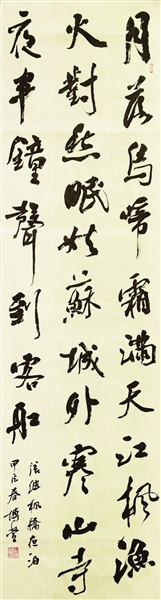 月落烏啼霜滿天江楓漁
火對愁眠姑蘇城外寒山寺
夜半鐘聲到客船
張继楓橋夜泊
甲辰春